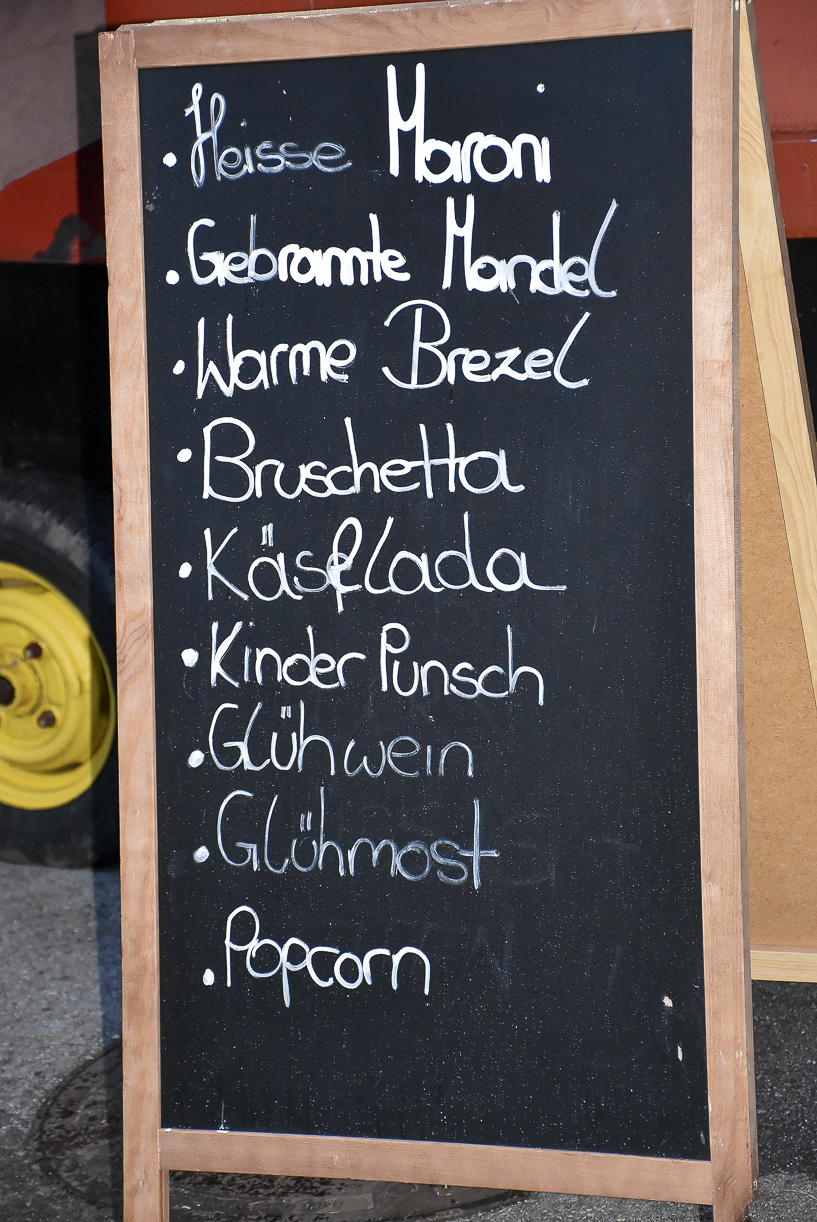 • Heisse Maroni
• Gebrannte Mandel
• Warme Brezel
• Bruschetta
• Käsflada
• Kinder Punsch
• Glühwein
• Glühmost
• Popcorn